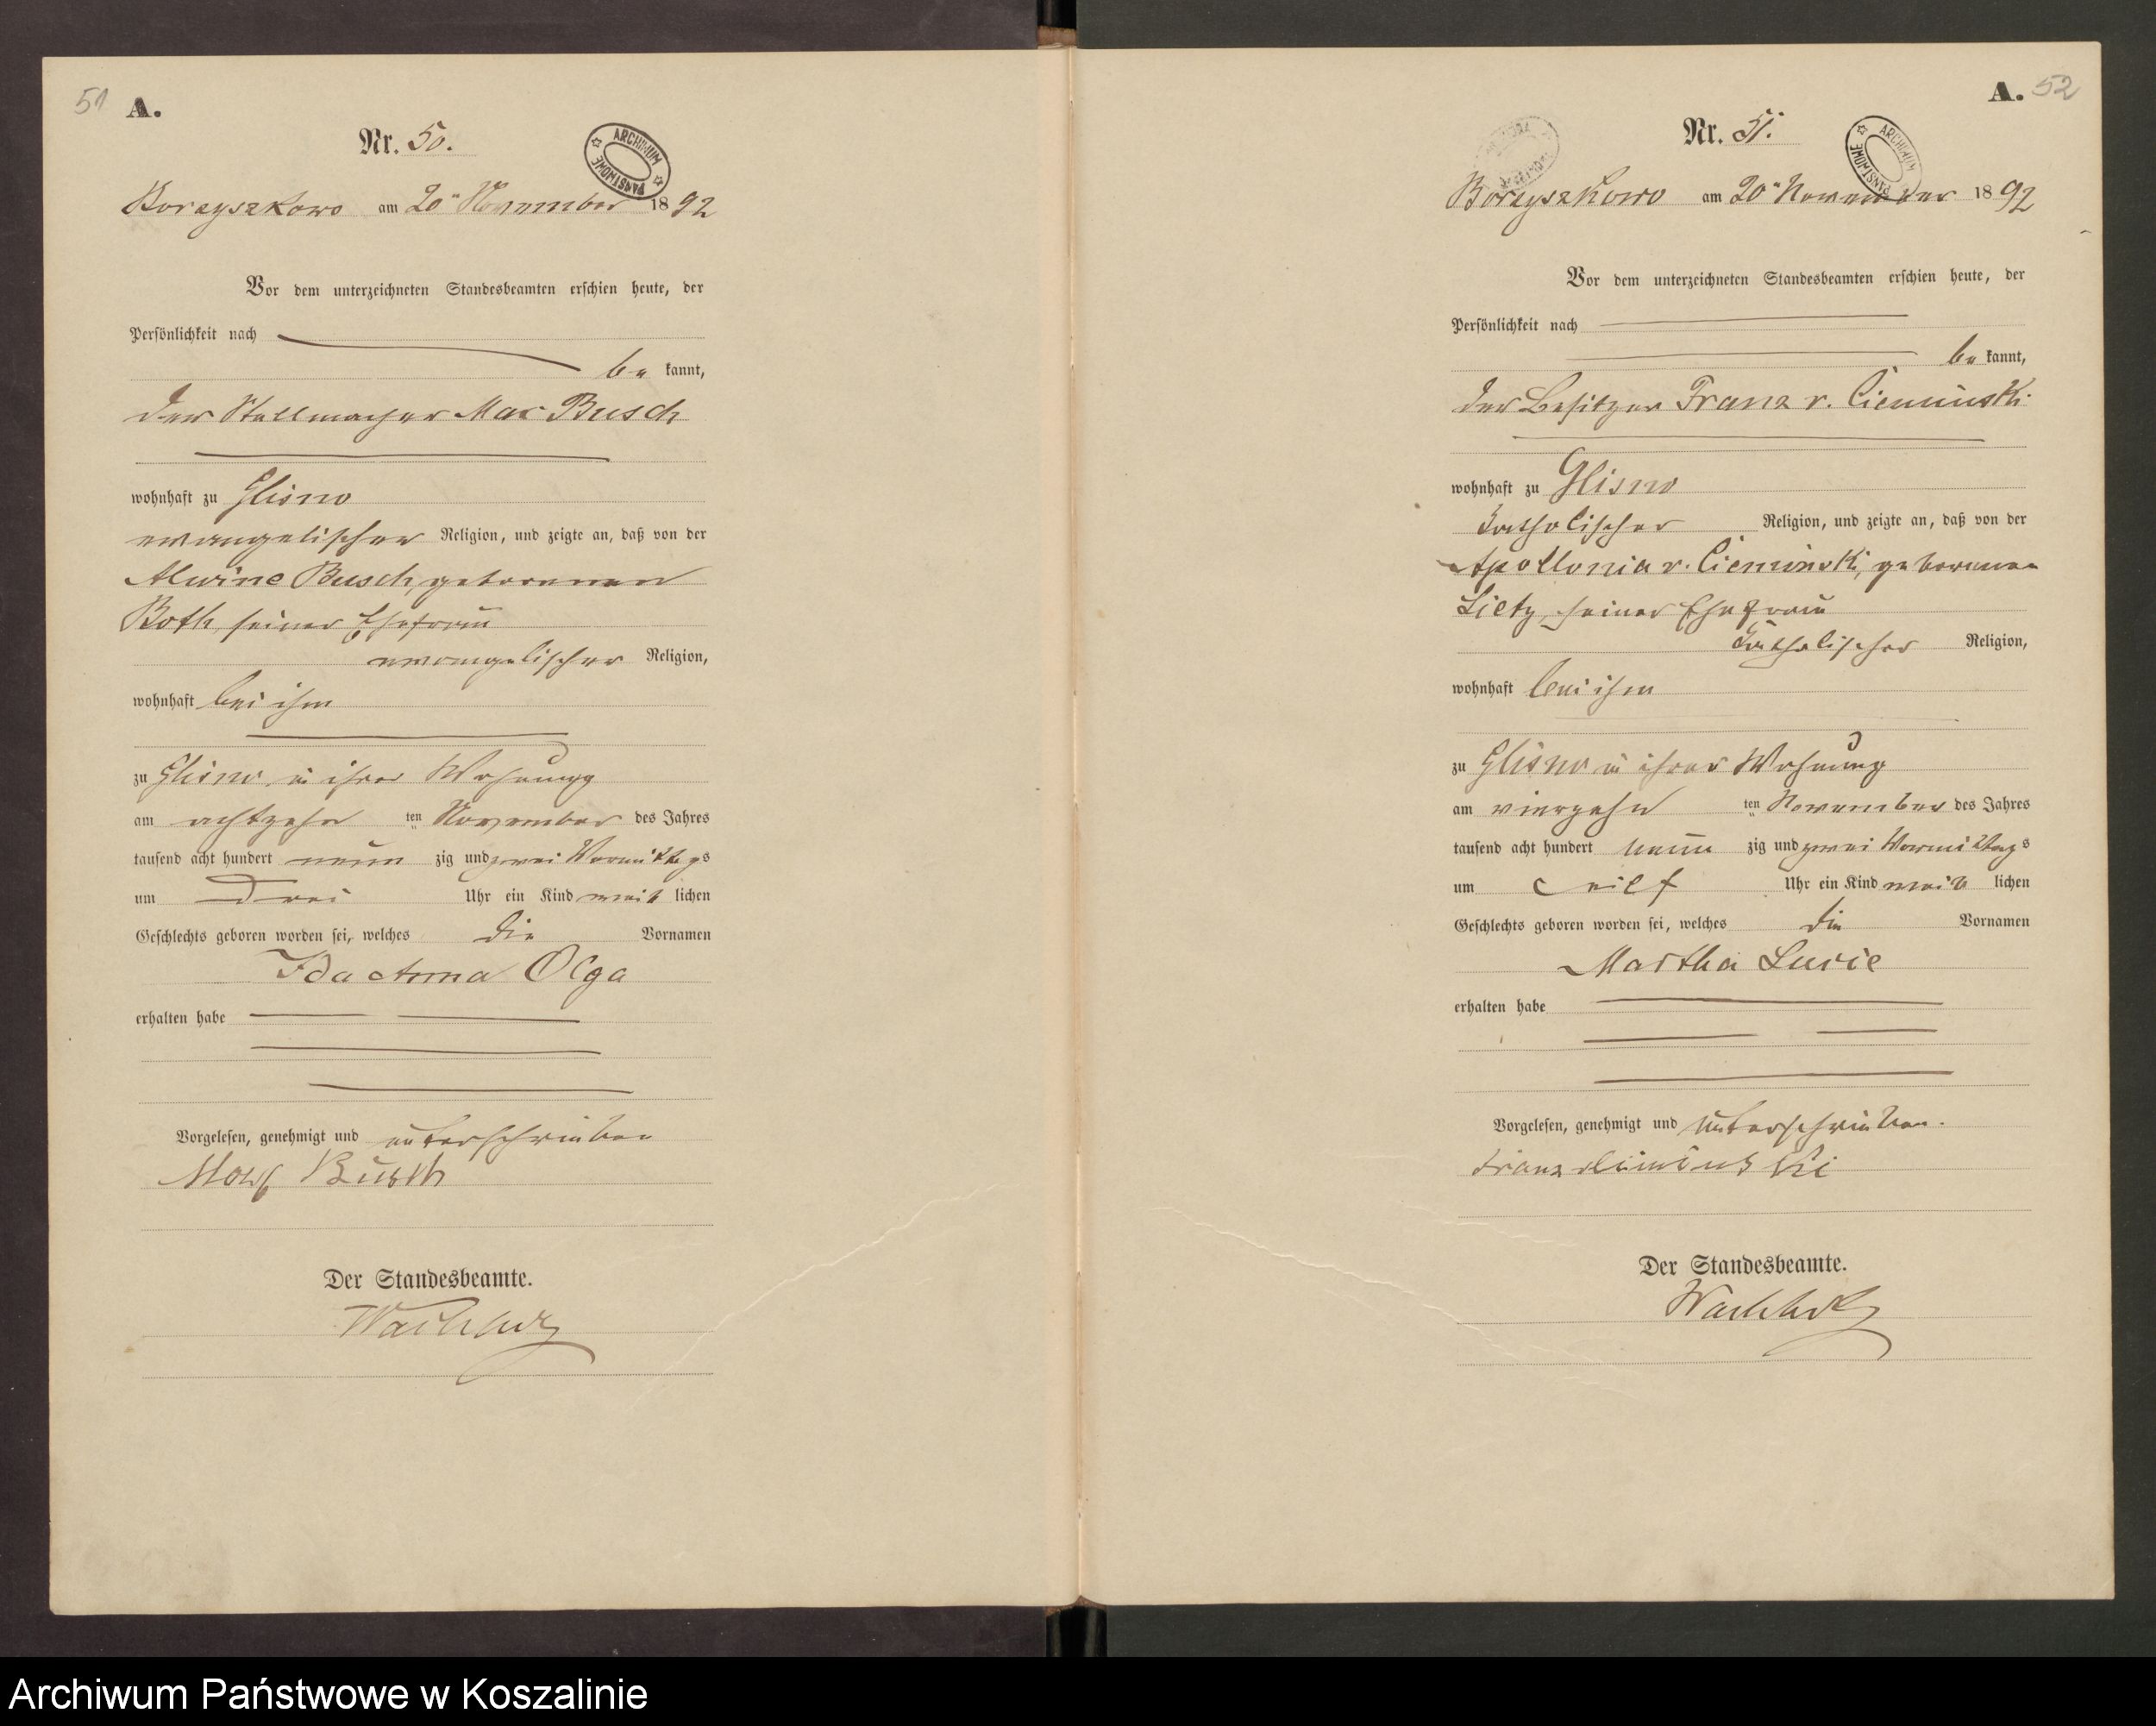 51 A.
Nr. 50.
ARCHIWUM PAŃSTWOWE
Borzyszkowo am 20ten November 1892
Vor dem unterzeichneten Standesbeamten erschien heute, der
Persönlichkeit nach
be kannt,
der Stellmacher Max Busch
wohnhaft zu Glisno
evangelischer Religion, und zeigte an, daß von der
Alwine Busch, geborenen
Roth, seiner Ehefrau
evangelischer Religion,
wohnhaft bei ihm
zu Glisno in ihrer Wohnung
am achtzehn ten November des Jahres
tausend acht hundert neun zig und zwei Vormittags
um drei Uhr ein Kind weib lichen
Geschlechts geboren worden sei, welches die Vornamen
Ida Anna Olga
erhalten habe
Vorgelesen, genehmigt und unterschrieben
Max Busch
Der Standesbeamte.
A. 52
Nr. 51.
ARCHIWUM PAŃSTWOWE
Borzyszkowo am 20ten November 1892
Vor dem unterzeichneten Standesbeamten erschien heute, der
Persönlichkeit nach
be kannt,
der Besitzer Franz v. Cieminski
wohnhaft zu Glisno
katholischer Religion, und zeigte an, daß von der
Apollonia v. Cieminski, geborenen
seiner Ehefrau
katholischer Religion,
wohnhaft bei ihm
zu Glisno in ihrer Wohnung
am vierzehn ten November des Jahres
tausend acht hundert neun zig und zwei Vormittags
um eilf Uhr ein Kind weib lichen
Geschlechts geboren worden sei, welches die Vornamen
Martha Lucie
erhalten habe
Vorgelesen, genehmigt und unterschrieben.
Franz
Der Standesbeamte.
Archiwum Państwowe w Koszalinie